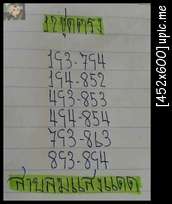 12ชุดตรง
193-794
194-852
493-853
494-854
793-863
893-894
สายลมแสงแดด
[452x600] upic.me